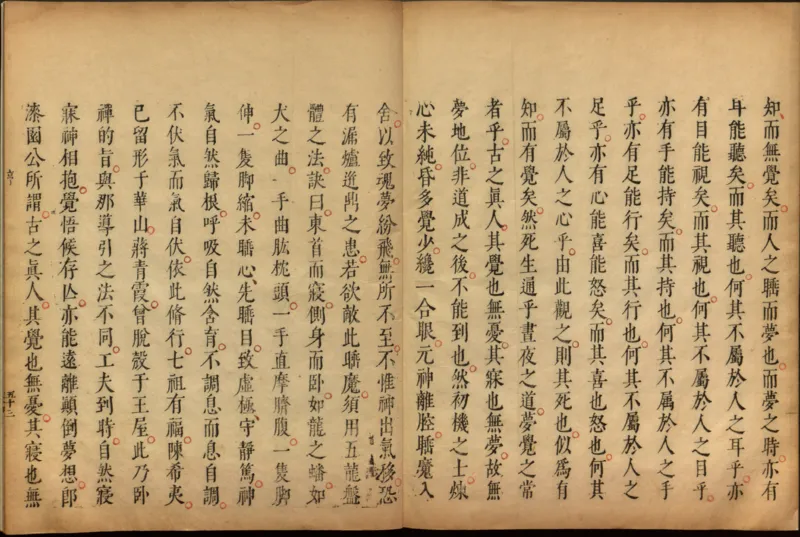 知而無覺矣而人之睡而夢也而夢之時亦有
耳能聽矣而其聽也何其不屬於人之耳乎亦
有目能視矣而其視也何其不屬於人之目乎
亦有手能持矣而其持也何其不屬於人之手
乎亦有足能行矣而其行也何其不屬於人之
足乎亦有心能喜能怒矣而其喜也怒也何其
不屬於人之心乎由此觀之則其死也似爲有
知而有覺矣然死生通乎晝夜之道夢覺之常
者乎古之眞人其覺也無憂其寐也無夢故無
夢地位非道成之後不能到也然初機之士煉
心未純昏多覺少纔一合眼元神離腔睡魔入
舍以致魂夢紛飛無所不至不惟神出氣移恐
有漏爐迸鼎之患若欲敵此睡魔須用五龍盤
體之法訣曰東首而寢側身而卧如龍之蟠如
犬之曲一手曲肱枕頭一手直摩臍腹一隻脚
伸一隻脚縮未睡心先睡目致虛極守靜篤神
氣自然歸根呼吸自然含育不調息而息自調
不伏氣而氣自伏依此脩行七祖有福陳希夷
已留形于華山蔣青霞曾脫殼于王屋此乃卧
禪的旨與那導引之法不同工夫到時自然寢
寐神相抱覺悟候存亡亦能遠離顚倒夢想卽
漆園公所謂古之眞人其覺也無憂其寢也無
五十三